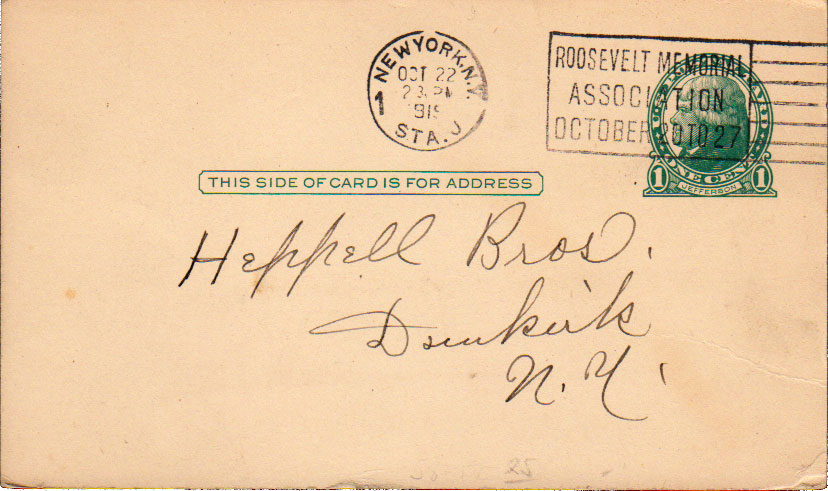 NEW YORK, N.Y.
1
OCT 22
2 3 PM
1919
STA. J
ROOSEVELT MEMORIAL
ASSOCIATION
OCTOBER 20 TO 27
U.S. POSTAL CARD
ONE CENT
1 JEFFERSON 1
THIS SIDE OF CARD IS FOR ADDRESS
Heppell Bros.
Dunkirk
N.Y.
25